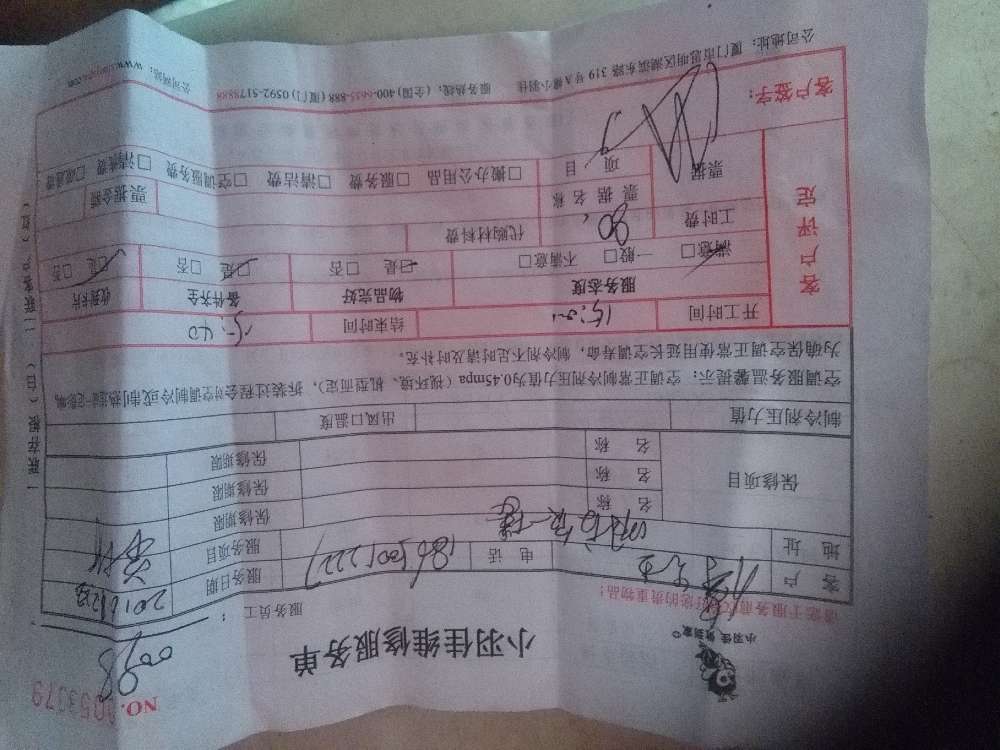 小羽佳维修服务单
NO.0053379
小羽佳 做到家
服务员工：
0098
请您于服务前收好您的贵重物品！
客户
电话
18650012227
服务日期
地址
服务项目
保修项目
名称
保修期限
名称
保修期限
名称
保修期限
制冷剂压力值
出风口温度
空调服务温馨提示：空调正常制冷剂压力值为0.45mpa（视环境、机型而定），拆装过程会对空调制冷或制热造成一定影响，
为确保空调正常使用延长空调寿命，制冷剂不足时请及时补充。
客户评定
开工时间
结束时间
15:40
服务态度
物品完好
备件齐全
收到卡片
满意□ 一般□ 不满意□
□是 □否
□是 □否
□是 □否
工时费
80
代购材料费
票据
票据名称
票据金额
项目
□搬办公用品 □服务费 □清洁费 □空调服务费 □清洗费 □疏通费
客户签字：
公司地址：厦门市思明区湖滨东路319号A幢小羽佳
服务热线：(全国)400-6655-888 (厦门)0592-5178888
公司网站：